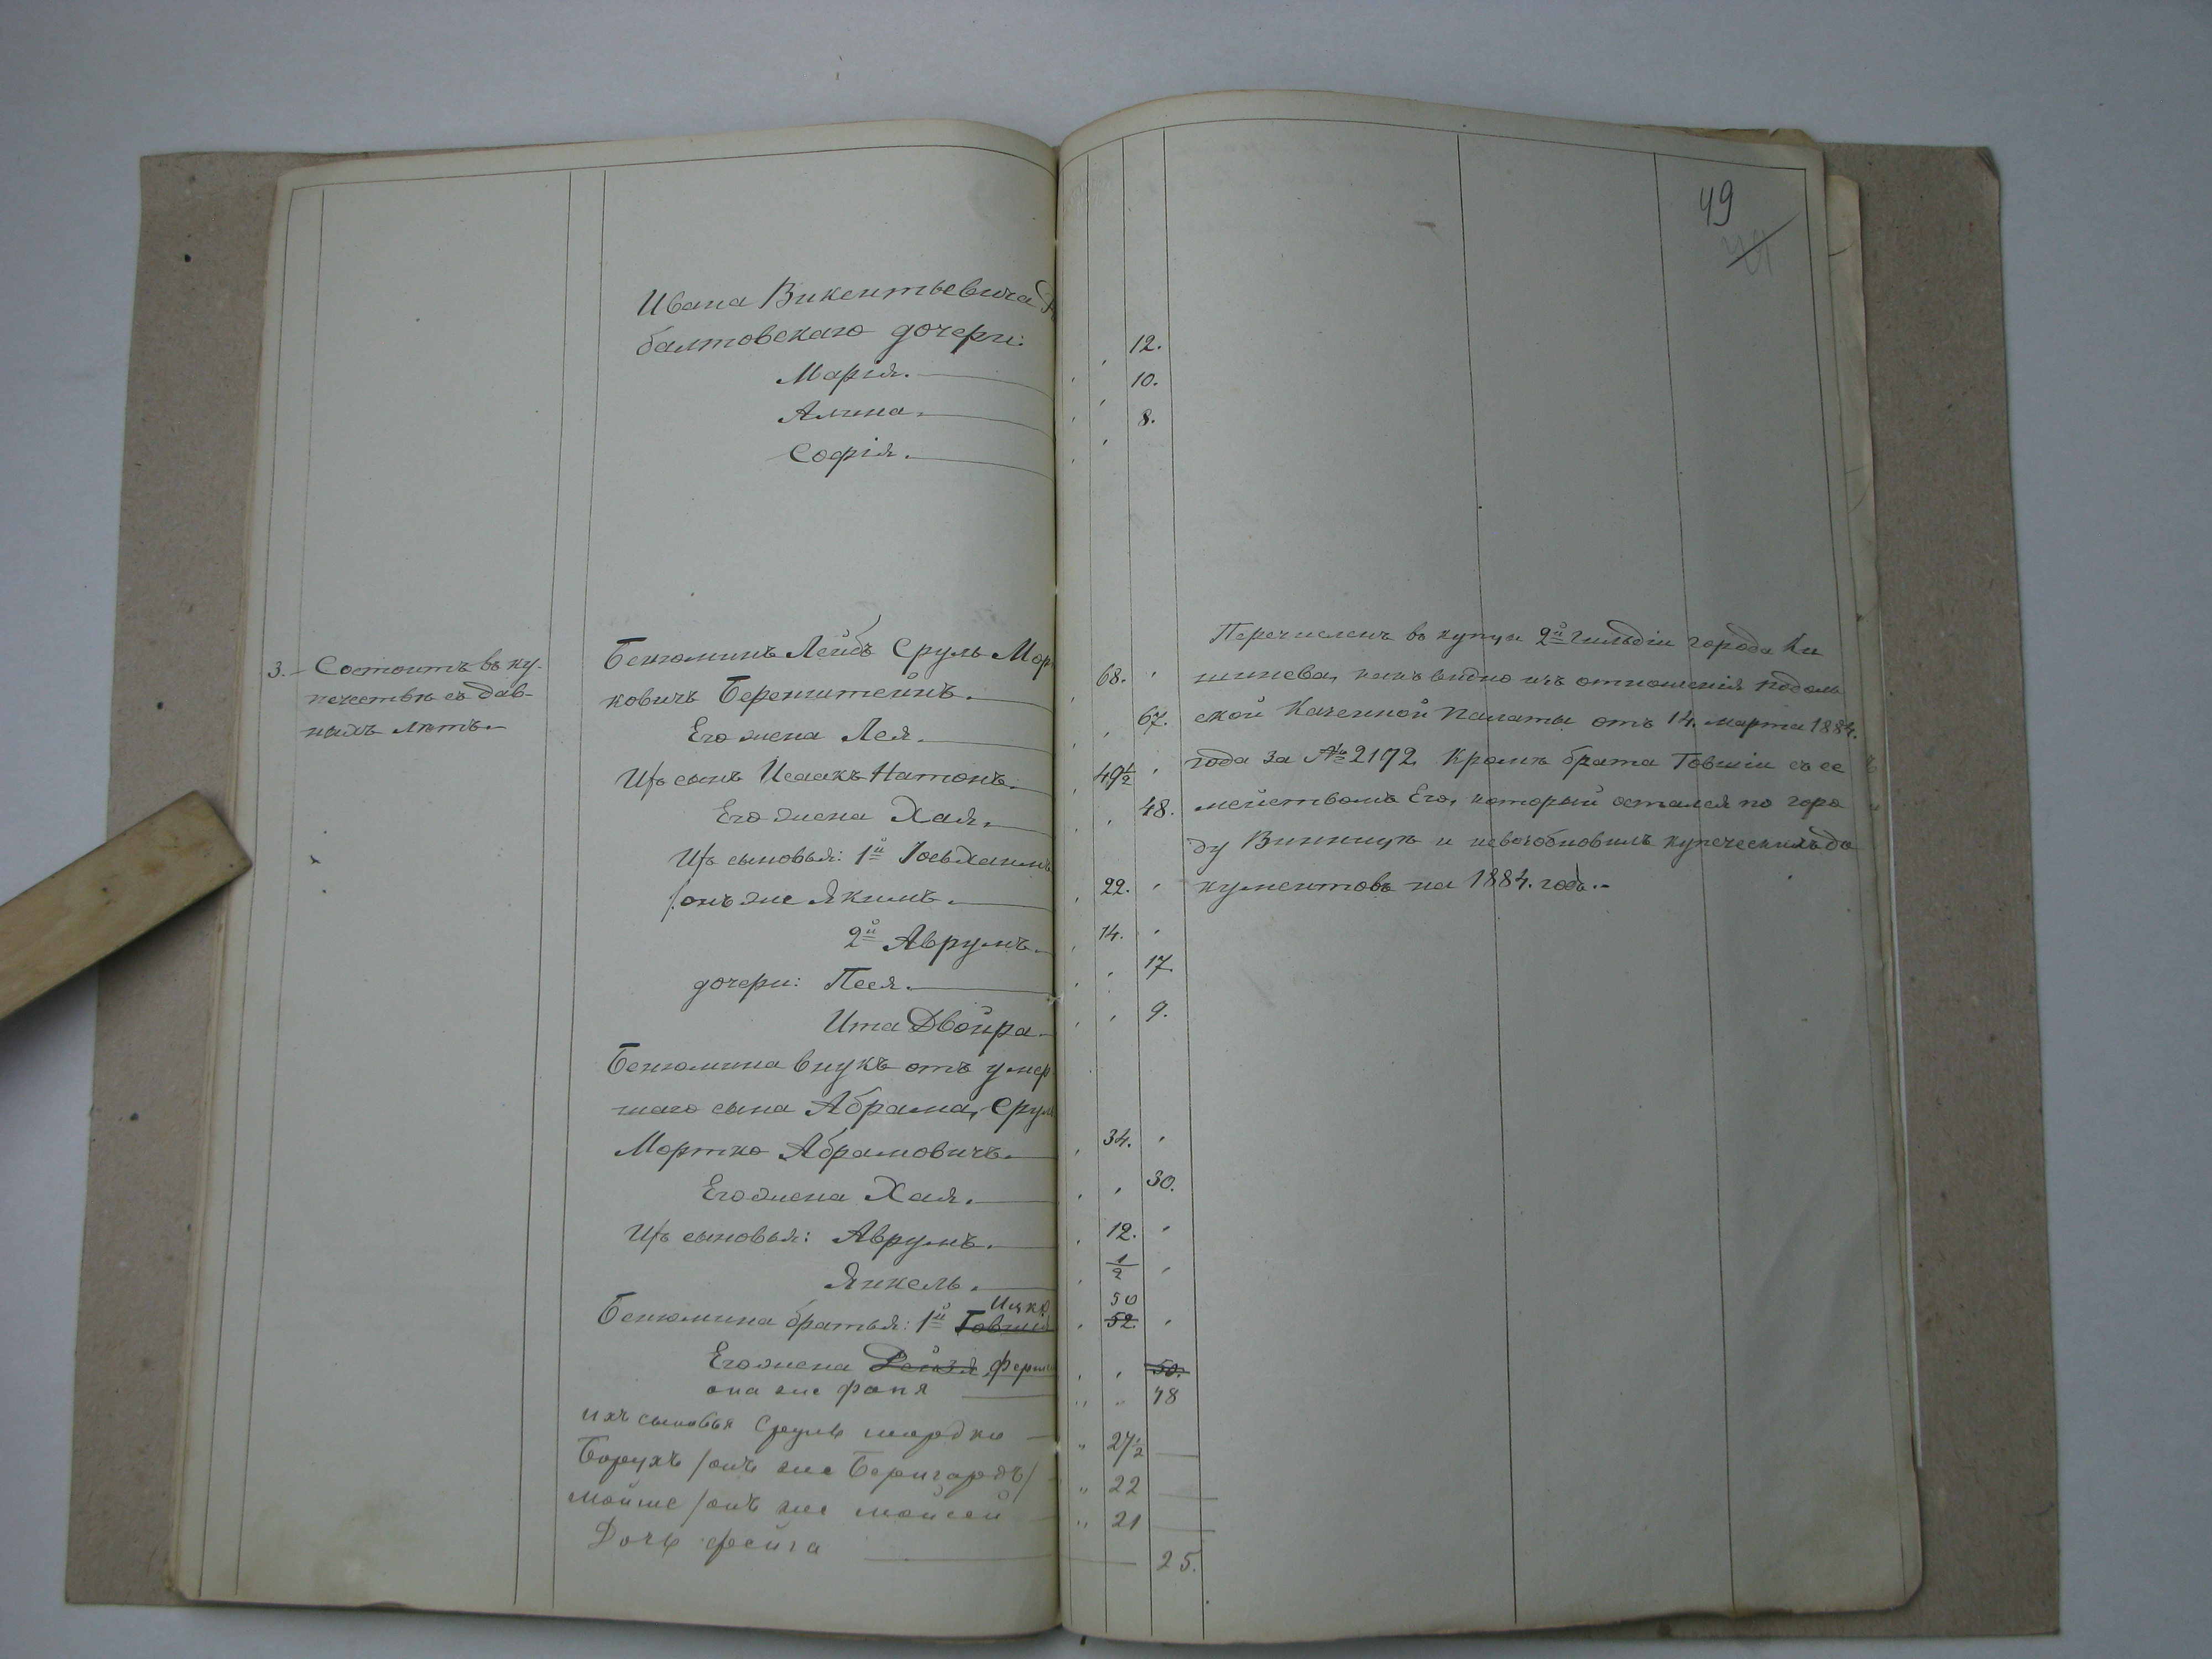 49
Ивана Викентьевича
балтовскаго дочери:
Марія. 12.
Алина. 10.
Софія. 8.
3. Состоитъ въ ку-
печествѣ съ дав-
нихъ лѣтъ.
Бенюминъ Лейбъ Сруль Мор
ковичъ Беренштейнъ. 68.
Его жена Лея. 67.
Ихъ сынъ Исаакъ Натонъ. 49 1/2
Его жена Хая. 48.
Ихъ сыновья: 1й Іосьхаимъ
/онъ же Якимъ. 22.
2й Аврумъ. 14.
дочери: Песя. 17.
Ита Двойра 9.
Бенюмина внукъ отъ умер
шаго сына Абрама, Сруль
Мортко Абрамовичъ. 34.
Его жена Хая. 30.
Ихъ сыновья: Аврумъ. 12.
Янкель. 1/2
Ицко 50
Бенюмина братья: 1й Товшія 52.
Его жена Рейзя 50.
она же фаня 48
ихъ сыновья Сруль мордко 27 1/2
Борухъ /онъ же Беригардъ/ 22
мойше /онъ же мойсей 21
Дочь фейга 25.
Перечисленъ въ купцы 2й гильдіи города Ки
шинева, какъ видно изъ отношенія подоль
ской Казенной Палаты отъ 14. марта 1884.
года за № 2192 Кромѣ брата Товшіи съ се
мействомъ Его, который остался по горо
ду Винницѣ и невозобновилъ купеческихъ до
кументовъ на 1884. годъ.-